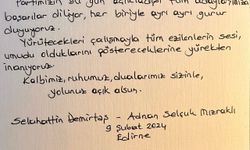 Partimizin bu gün açıkladığı tüm adaylarımıza
başarılar diliyor, her biriyle ayrı ayrı gurur
duyuyoruz.
Yürütecekleri çalışmayla tüm ezilenlerin sesi,
umudu olduklarını göstereceklerine yürekten
inanıyoruz.
Kalbimiz, ruhumuz, dualarımız sizinle,
yolunuz açık olsun.
Selahattin Demirtaş - Adnan Selçuk Mızraklı
9 Şubat 2024
Edirne